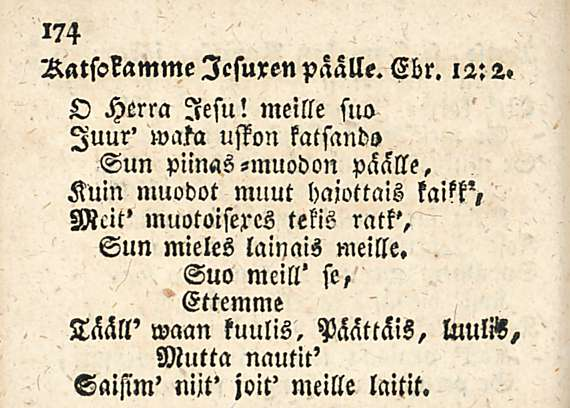 174
Katsokamme Jesuxen päälle. Ebr. 12:2.
O Herra Jesu! meille suo
Juur' waka uskon katsando
Sun piinas-muodon päälle,
Kuin muodot muut hajottais kaikk',
Meit' muotoisexes tekis ratk',
Sun mieles lainais meille.
Suo meill' se,
Ettemme
Tääll' waan kuulis, Päättäis, luulis,
Mutta nautit'
Saisim' niit' joit' meille laitit.